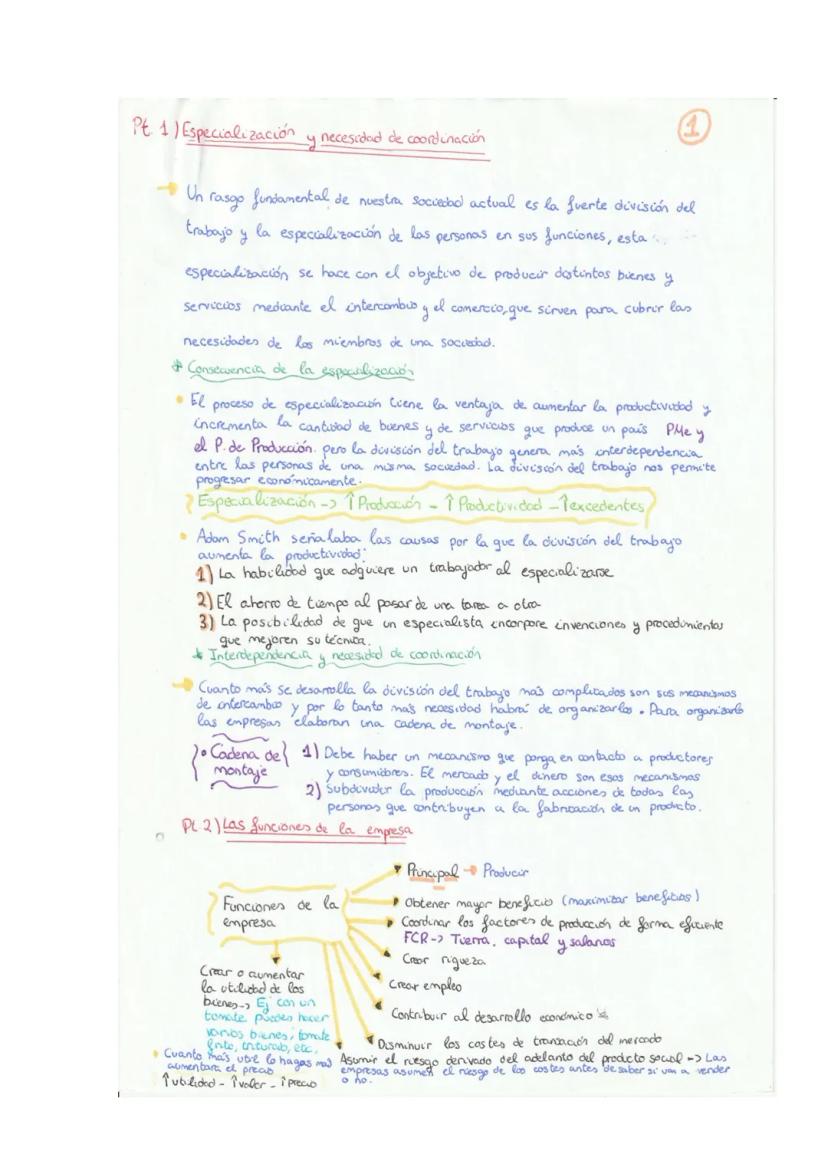 Pt. 1) Especialización y necesidad de coordinación
1
Un rasgo fundamental de nuestra sociedad actual es la fuerte división del
trabajo y la especialización de las personas en sus funciones, esta
especialización se hace con el objetivo de producir distintos bienes y
servicios mediante el intercambio y el comercio, que sirven para cubrir las
necesidades de los miembros de una sociedad.
* Consecuencia de la especialización
• El proceso de especialización tiene la ventaja de aumentar la productividad y
incrementa la cantidad de buenes y de servicios que produce un país PMe y
el P. de Producción. pero la división del trabajo genera más interdependencia
entre las personas de una misma sociedad. La división del trabajo nos permite
progresar económicamente.
Especialización -> ↑ Producción - ↑ Productividad - ↑ excedentes
• Adam Smith señalaba las causas por la que la división del trabajo
aumenta la productividad:
1) La habilidad que adquiere un trabajador al especializarse
2) El ahorro de tiempo al pasar de una tarea a otra
3) La posibilidad de que un especialista incorpore invenciones y procedimientos
que mejoren su técnica.
* Interdependencia y necesidad de coordinación
Cuanto más se desarrolla la división del trabajo más complicados son sus mecanismos
de intercambio y por lo tanto más necesidad habrá de organizarlos. Para organizarlo
las empresas elaboran una cadena de montaje.
• Cadena de
montaje
1) Debe haber un mecanismo que ponga en contacto a productores
y consumidores. El mercado y el dinero son esos mecanismos
2) Subdividir la producción mediante acciones de todas las
personas que contribuyen a la fabricación de un producto.
Pt. 2) Las funciones de la empresa
Funciones de la
empresa
Principal → Producir
Obtener mayor beneficio (maximizar beneficios)
Coordinar los factores de producción de forma eficiente
FCR -> Tierra, capital y salarios
Crear riqueza
Crear empleo
Contribuir al desarrollo económico
Disminuir los costes de transacción del mercado
Asumir el riesgo derivado del adelanto del producto social -> Las
empresas asumen el riesgo de los costes antes de saber si van a vender
o no.
Crear o aumentar
la utilidad de los
bienes -> Ej con un
tomate puedes hacer
varios bienes; tomate
frito, triturado, etc.
• Cuanto más útil lo hagas más
aumentara el precio
↑ utilidad - ↑ valor - ↑ precio